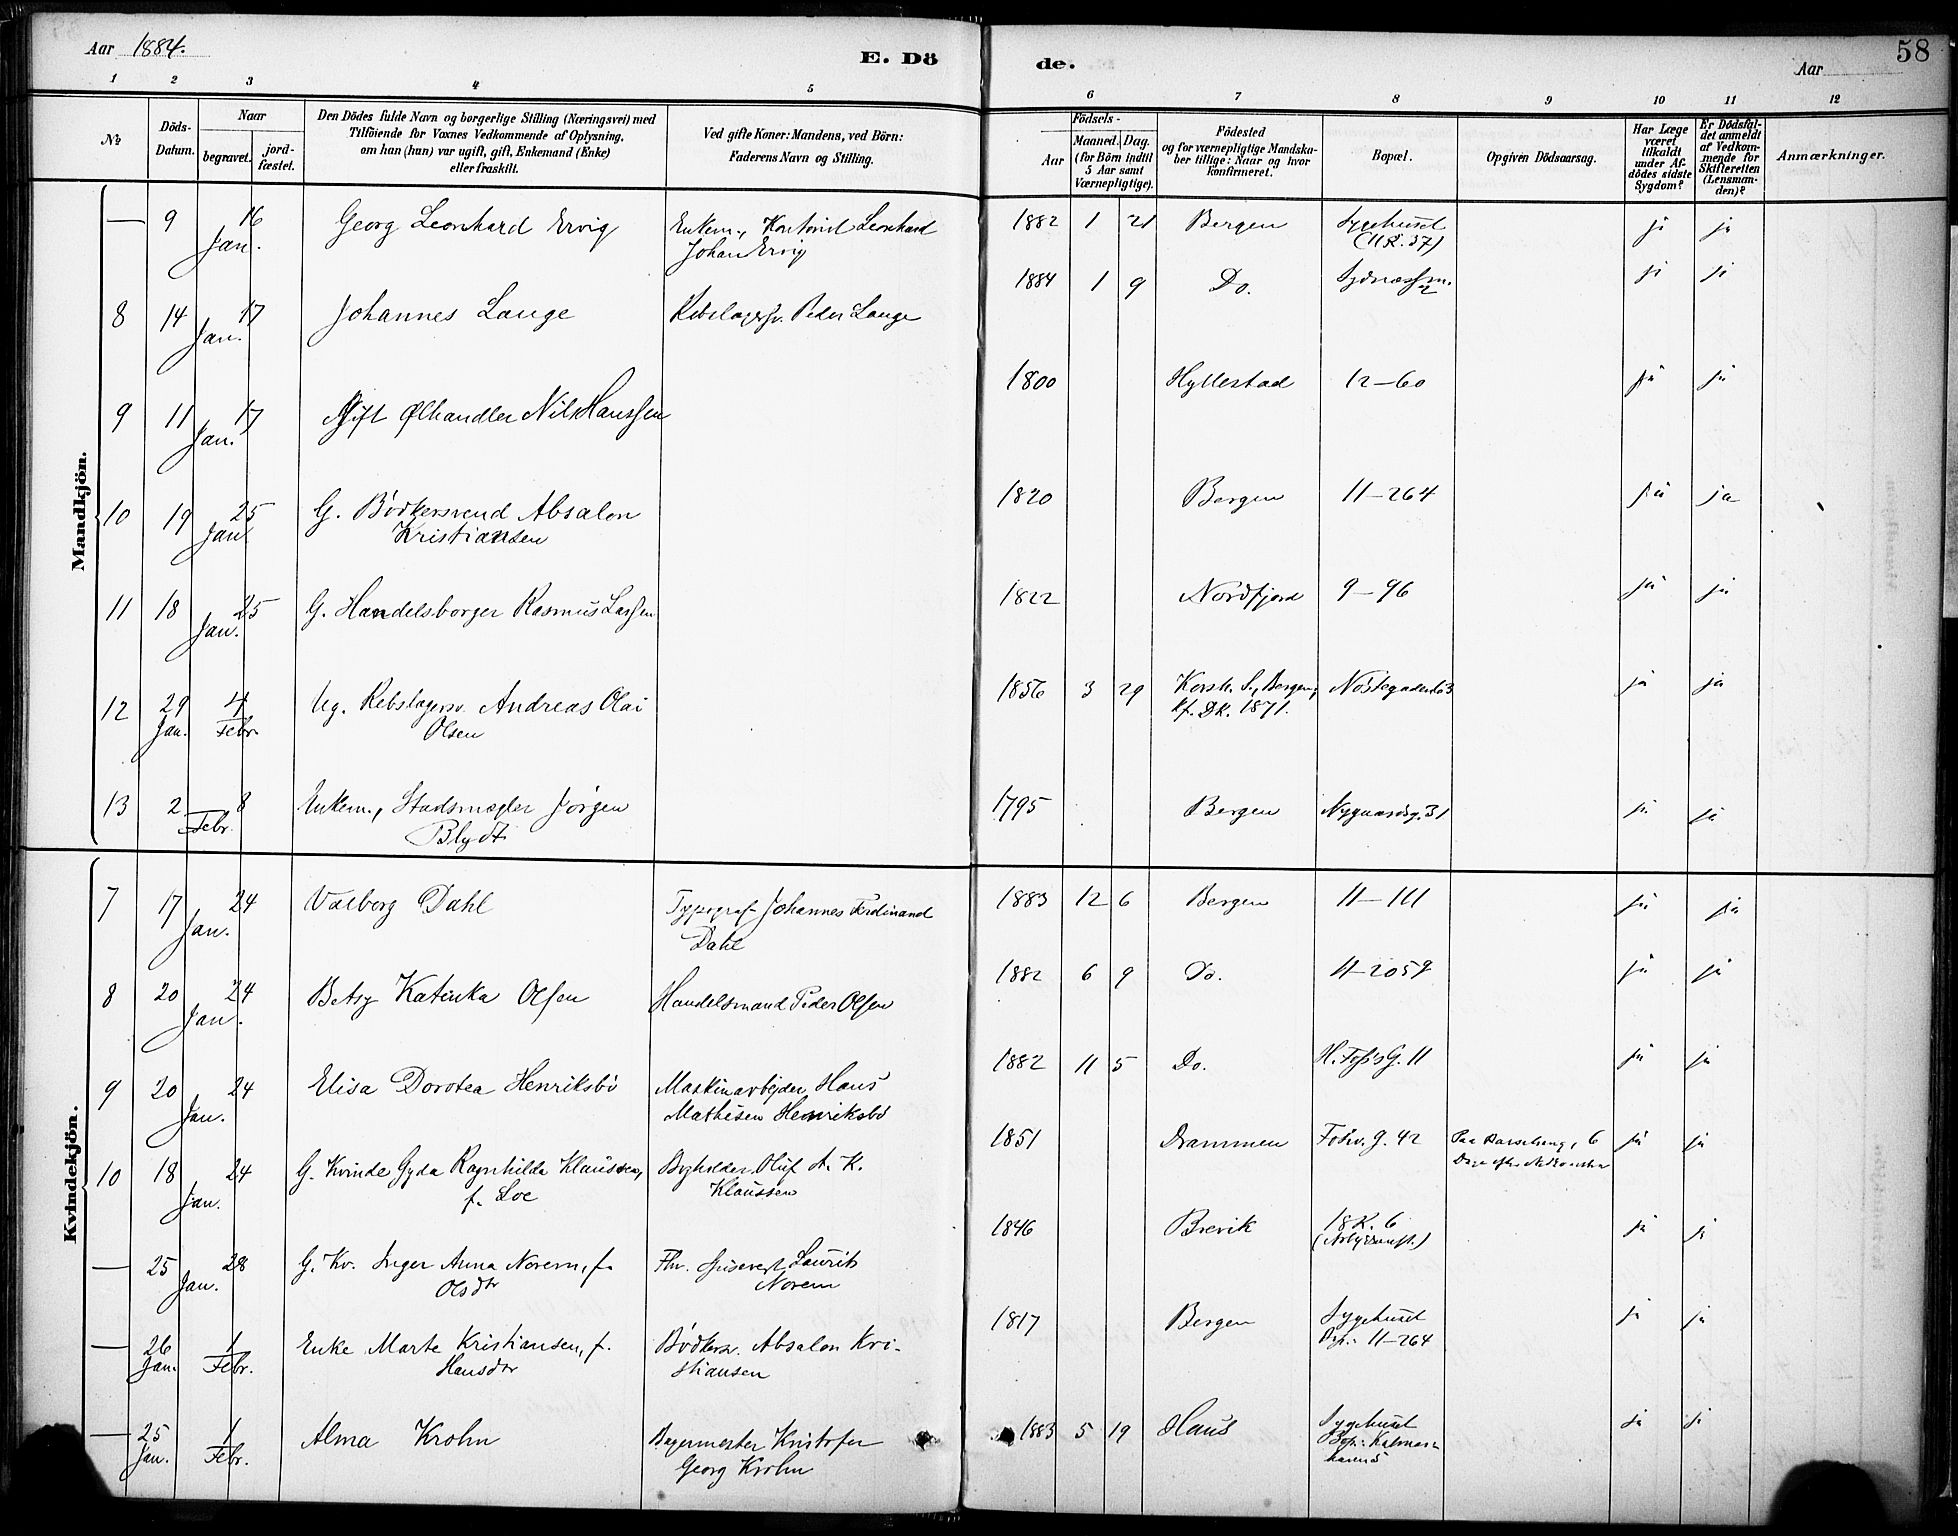 Aar 1884.
E. Dö
de.
Aar
58
1 2 3 4 5 6 7 8 9 10 11 12
№
Döds-
Datum.
Naar
begravet.
jord-
fæstet.
Den Dödes fulde Navn og borgerlige Stilling (Næringsvei) med
Tilföiende for Voxnes Vedkommende af Oplysning,
om han (hun) var ugift, gift, Enkemand (Enke)
eller fraskilt.
Ved gifte Koner: Mandens, ved Börn:
Faderens Navn og Stilling.
Födsels-
Aar
Maaned.
Dag.
(for Börn indtil
5 Aar samt
Værnepligtige).
Födested
og for værnepligtige Mandska-
ber tillige: Naar og hvor
konfirmeret.
Bopæl.
Opgiven Dödsaarsag.
Har Læge
været
tilkaldt
under Af-
dödes sidste
Sygdom?
Er Dödsfal-
det anmeldt
af Vedkom-
mende for
Skifteretten
(Lensman-
den)?
Anmærkninger.
Mandkjön.
— 9 16 Georg Leonhard Ervig Enkem., Kontorist Leonhard 1882 1 21 Bergen Sygehuset ja ja
Jan. Johan Ervig (11 R. 37)
8 14 17 Johannes Lange Rebslagersv. Peder Lange 1884 1 9 Do. ja ja
Jan.
9 11 17 Gift Ølhandler Nils Hanssen 1800 Hyllestad 12–60 ja ja
Jan.
10 19 25 G. Bödkersvend Absalon 1820 Bergen 11–264 ja ja
Jan Kristiansen
11 18 25 G. Handelsborger Rasmus Larssen 1822 Nordfjord 9–96 ja ja
Jan.
12 29 4 Ug. Rebslagersv. Andreas Olai 1856 3 29 Korsk. S., Bergen, Nöstegaden 63 ja ja
Jan. Febr. Olsen kf. DK. 1871.
13 2 8 Enkem., Stadsmægler Jörgen 1795 Bergen Nygaardsg. 31 ja ja
Febr. Blydt
Kvindekjön.
7 17 24 Valborg Dahl Typograf Johannes Ferdinand 1883 12 6 Bergen 11–111 ja ja
Jan. Dahl
8 20 24 Betsy Katinka Olsen Handelsmand Peder Olsen 1882 6 9 Do. 11–2059 ja ja
Jan.
9 20 24 Elisa Dorotea Henriksbö Maskinarbejder Hans 1882 11 5 Do. H. Foss G. 11 ja ja
Jan. Mathisen Henriksbö
10 18 24 G. Kvinde Gyda Ragnhilda Klaussen, Bogholder Oluf A. K. 1851 Drammen Fosw. g. 42 Paa Barselseng, 6 ja ja
Jan. f. Loe Klaussen Dage efter Nedkomsten
— 25 28 G. Kv. Inger Anna Norem, f. Fhv. Spisevert Laurits 1846 Brevik 18 R. 6 ja ja
Jan. Olsdtr Norem
— 26 1 Enke Marte Kristiansen, f. Bödkersv. Absalon Kri- 1817 Bergen Sygehuset ja ja
Jan. Febr. Hansdtr stiansen Bop.: 11–264
— 25 1 Alma Krohn Bagermester Kristofer 1883 5 19 Haus Sygehuset ja ja
Jan. Febr. Georg Krohn Bop.: